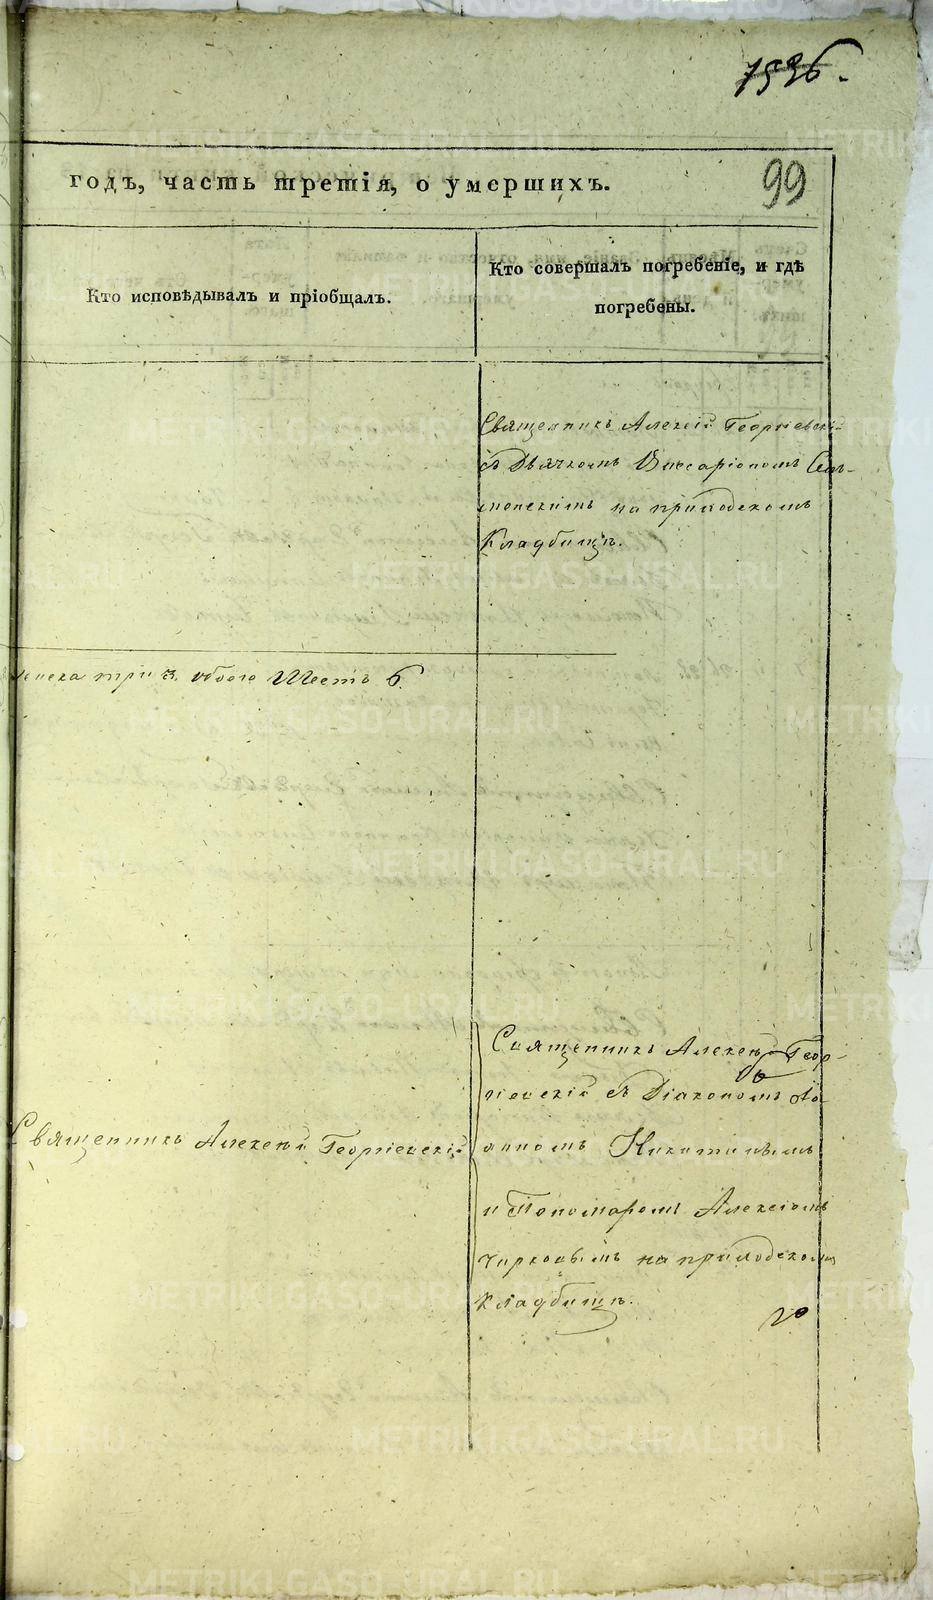 1596.
99
годъ, часть третія, о умершихъ.
Кто исповѣдывалъ и пріобщалъ.
Кто совершалъ погребеніе, и гдѣ
погребены.
Священникъ Алексій Георгіевскі
съ Дьячкомъ Виссаріономъ
на приходскомъ
Кладбищѣ.
три 3. обоего Шесть 6.
Священникъ Алексѣй Геор-
гіевскій съ Діакономъ Іо-
Священникъ Алексѣй Георгіевскій
анномъ Никитинымъ
и Пономаремъ Алексіемъ
Чирковымъ на приходскомъ
Кладбищѣ.
METRIKI.GASO-URAL.RU